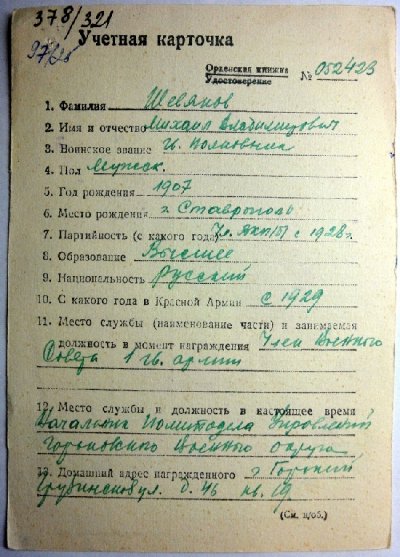 378/321
Учетная карточка
Орденская книжка
Удостоверение № 052423
1. Фамилия Шевяков
2. Имя и отчество Михаил Владимирович
3. Воинское звание Полковник
4. Пол Мужск.
5. Год рождения 1907
6. Место рождения г. Ставрополь
7. Партийность (с какого года) Чл. ВКП(б) с 1928 г.
8. Образование Высшее
9. Национальность Русский
10. С какого года в Красной Армии с 1929
11. Место службы (наименование части) и занимаемая
должность в момент награждения Член Военного
Совета 1 гв. армии
12. Место службы и должность в настоящее время
Начальник Политотдела Управлений
Горьковского Военного округа
13. Домашний адрес награжденного г. Горький
Грузинская ул. д. 46 кв. 19
(См. н/об.)